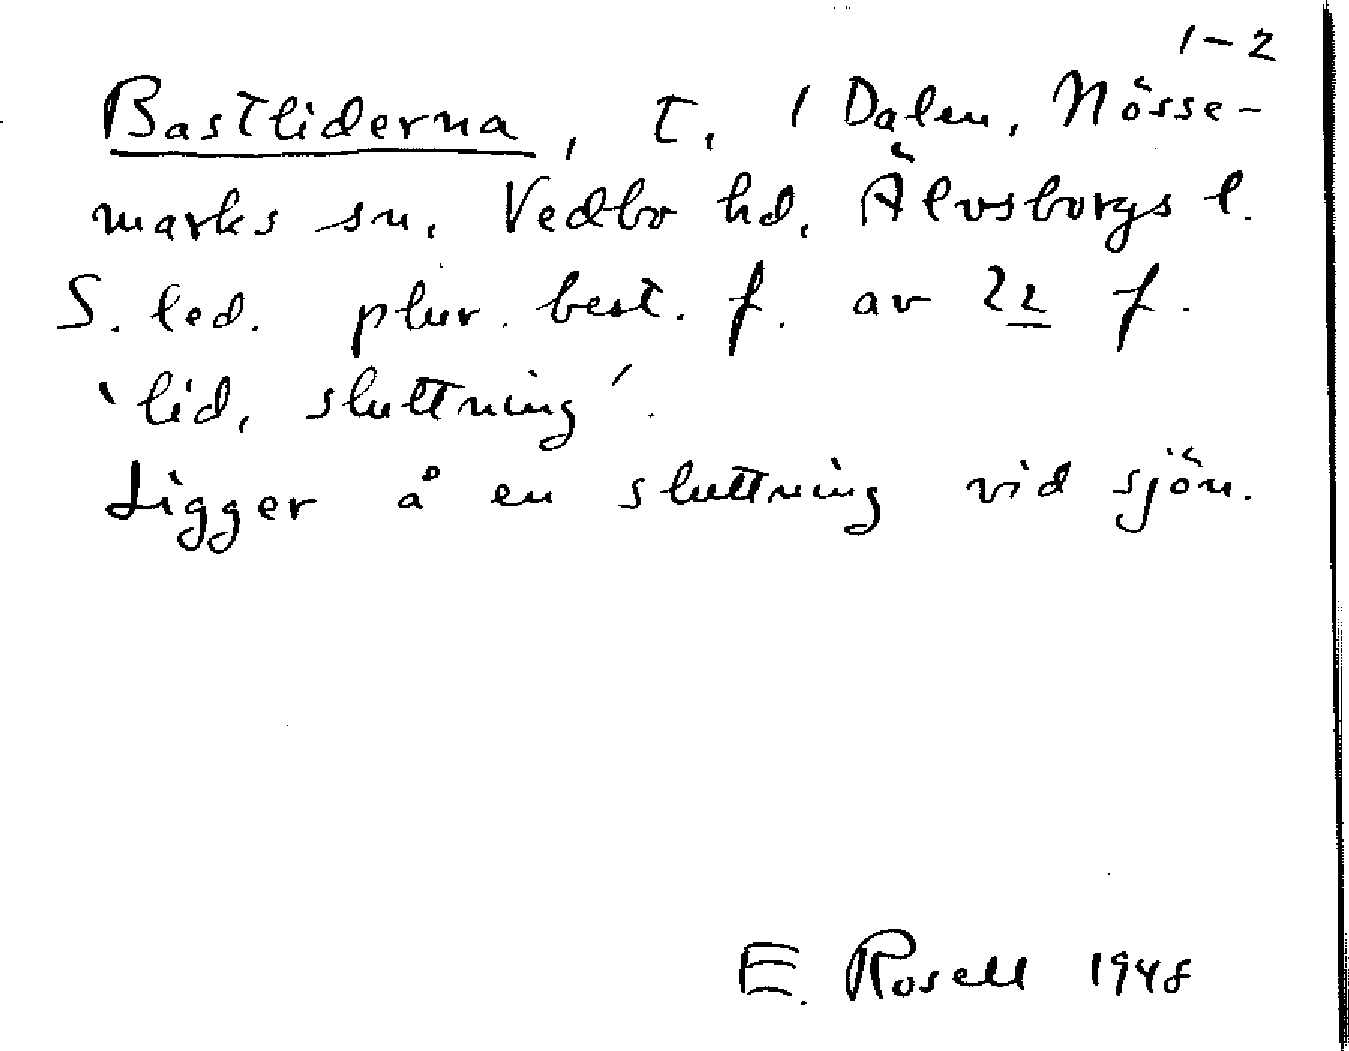 1-2
Bastliderna, t. 1 Dalen, Nösse-
marks sn, Vedbo hd, Älvsborgs l.
S. led. plur. best. f. av f.
'lid, sluttning'.
Ligger å en sluttning vid sjön.
E. Rosell 1948